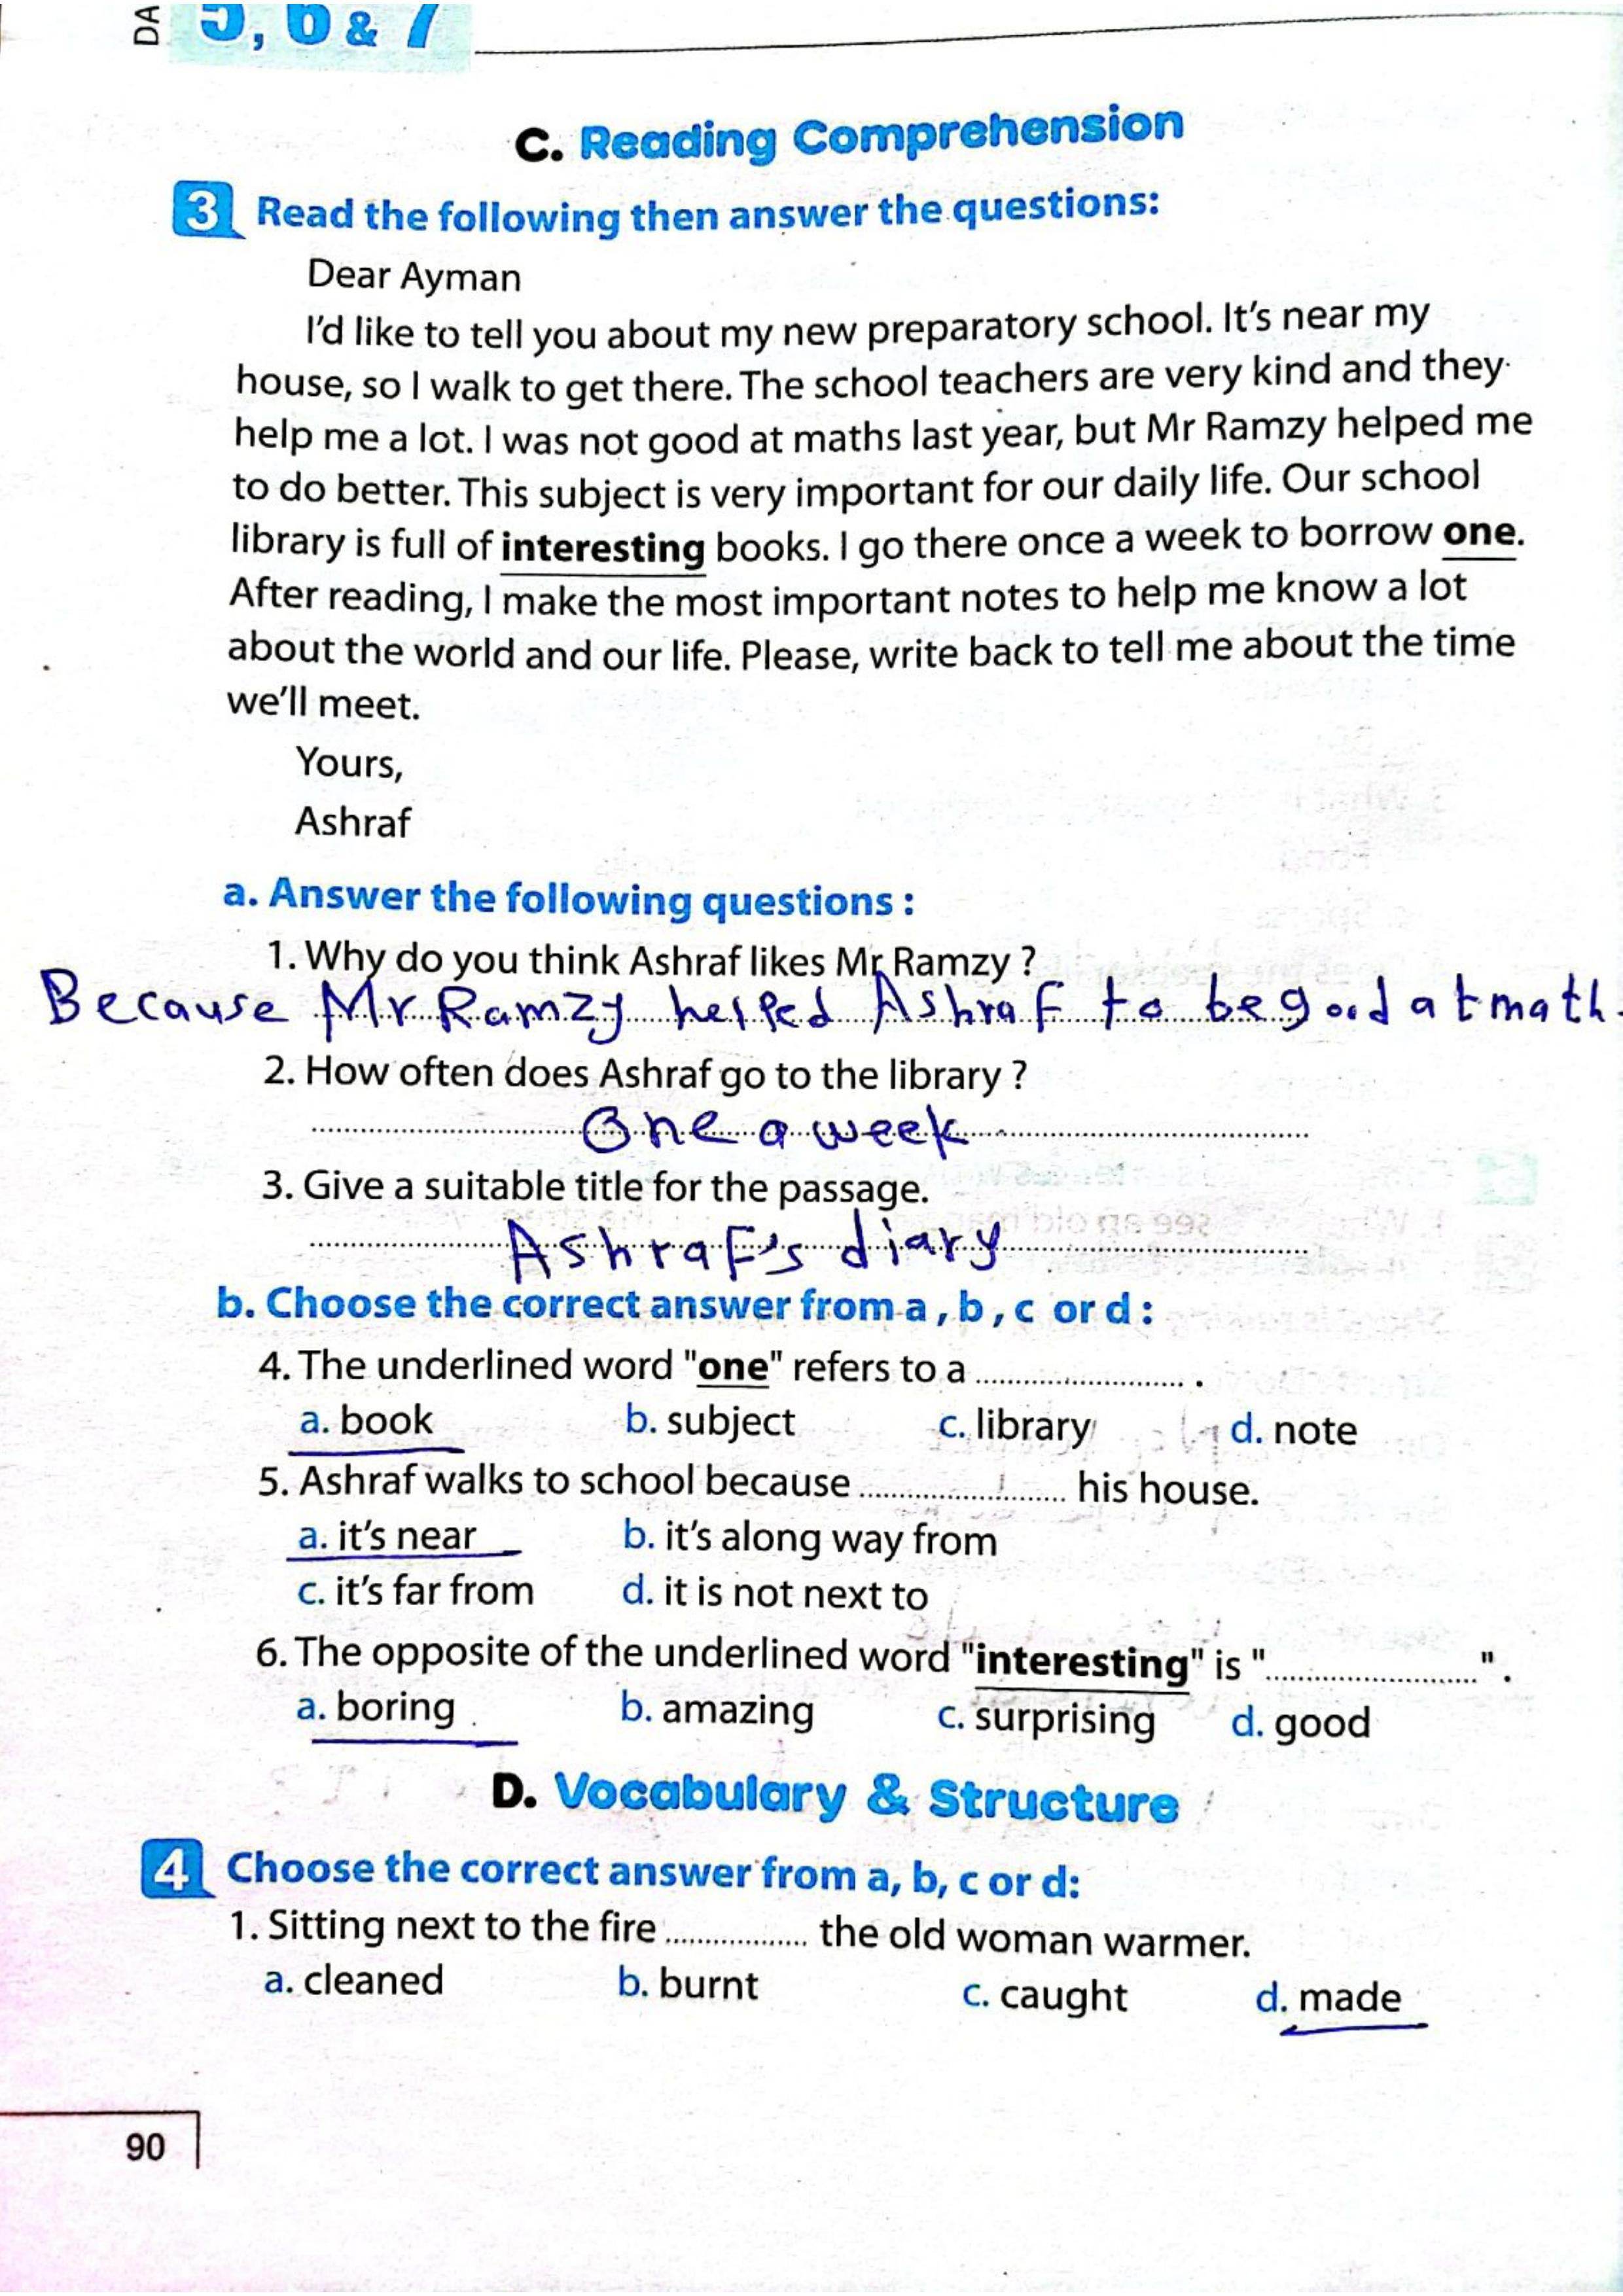 DA
5, 6 & 7
C. Reading Comprehension
3 Read the following then answer the questions:
Dear Ayman
I'd like to tell you about my new preparatory school. It's near my
house, so I walk to get there. The school teachers are very kind and they
help me a lot. I was not good at maths last year, but Mr Ramzy helped me
to do better. This subject is very important for our daily life. Our school
library is full of interesting books. I go there once a week to borrow one.
After reading, I make the most important notes to help me know a lot
about the world and our life. Please, write back to tell me about the time
we'll meet.
Yours,
Ashraf
a. Answer the following questions :
1. Why do you think Ashraf likes Mr Ramzy ?
Because Mr Ramzy helped Ashraf to be good at math.
2. How often does Ashraf go to the library ?
One a week
3. Give a suitable title for the passage.
Ashraf's diary
b. Choose the correct answer from a , b , c or d :
4. The underlined word "one" refers to a ........................ .
a. book b. subject c. library d. note
5. Ashraf walks to school because ........................ his house.
a. it's near b. it's along way from
c. it's far from d. it is not next to
6. The opposite of the underlined word "interesting" is "........................" .
a. boring b. amazing c. surprising d. good
D. Vocabulary & Structure
4 Choose the correct answer from a, b, c or d:
1. Sitting next to the fire ................. the old woman warmer.
a. cleaned b. burnt c. caught d. made
90